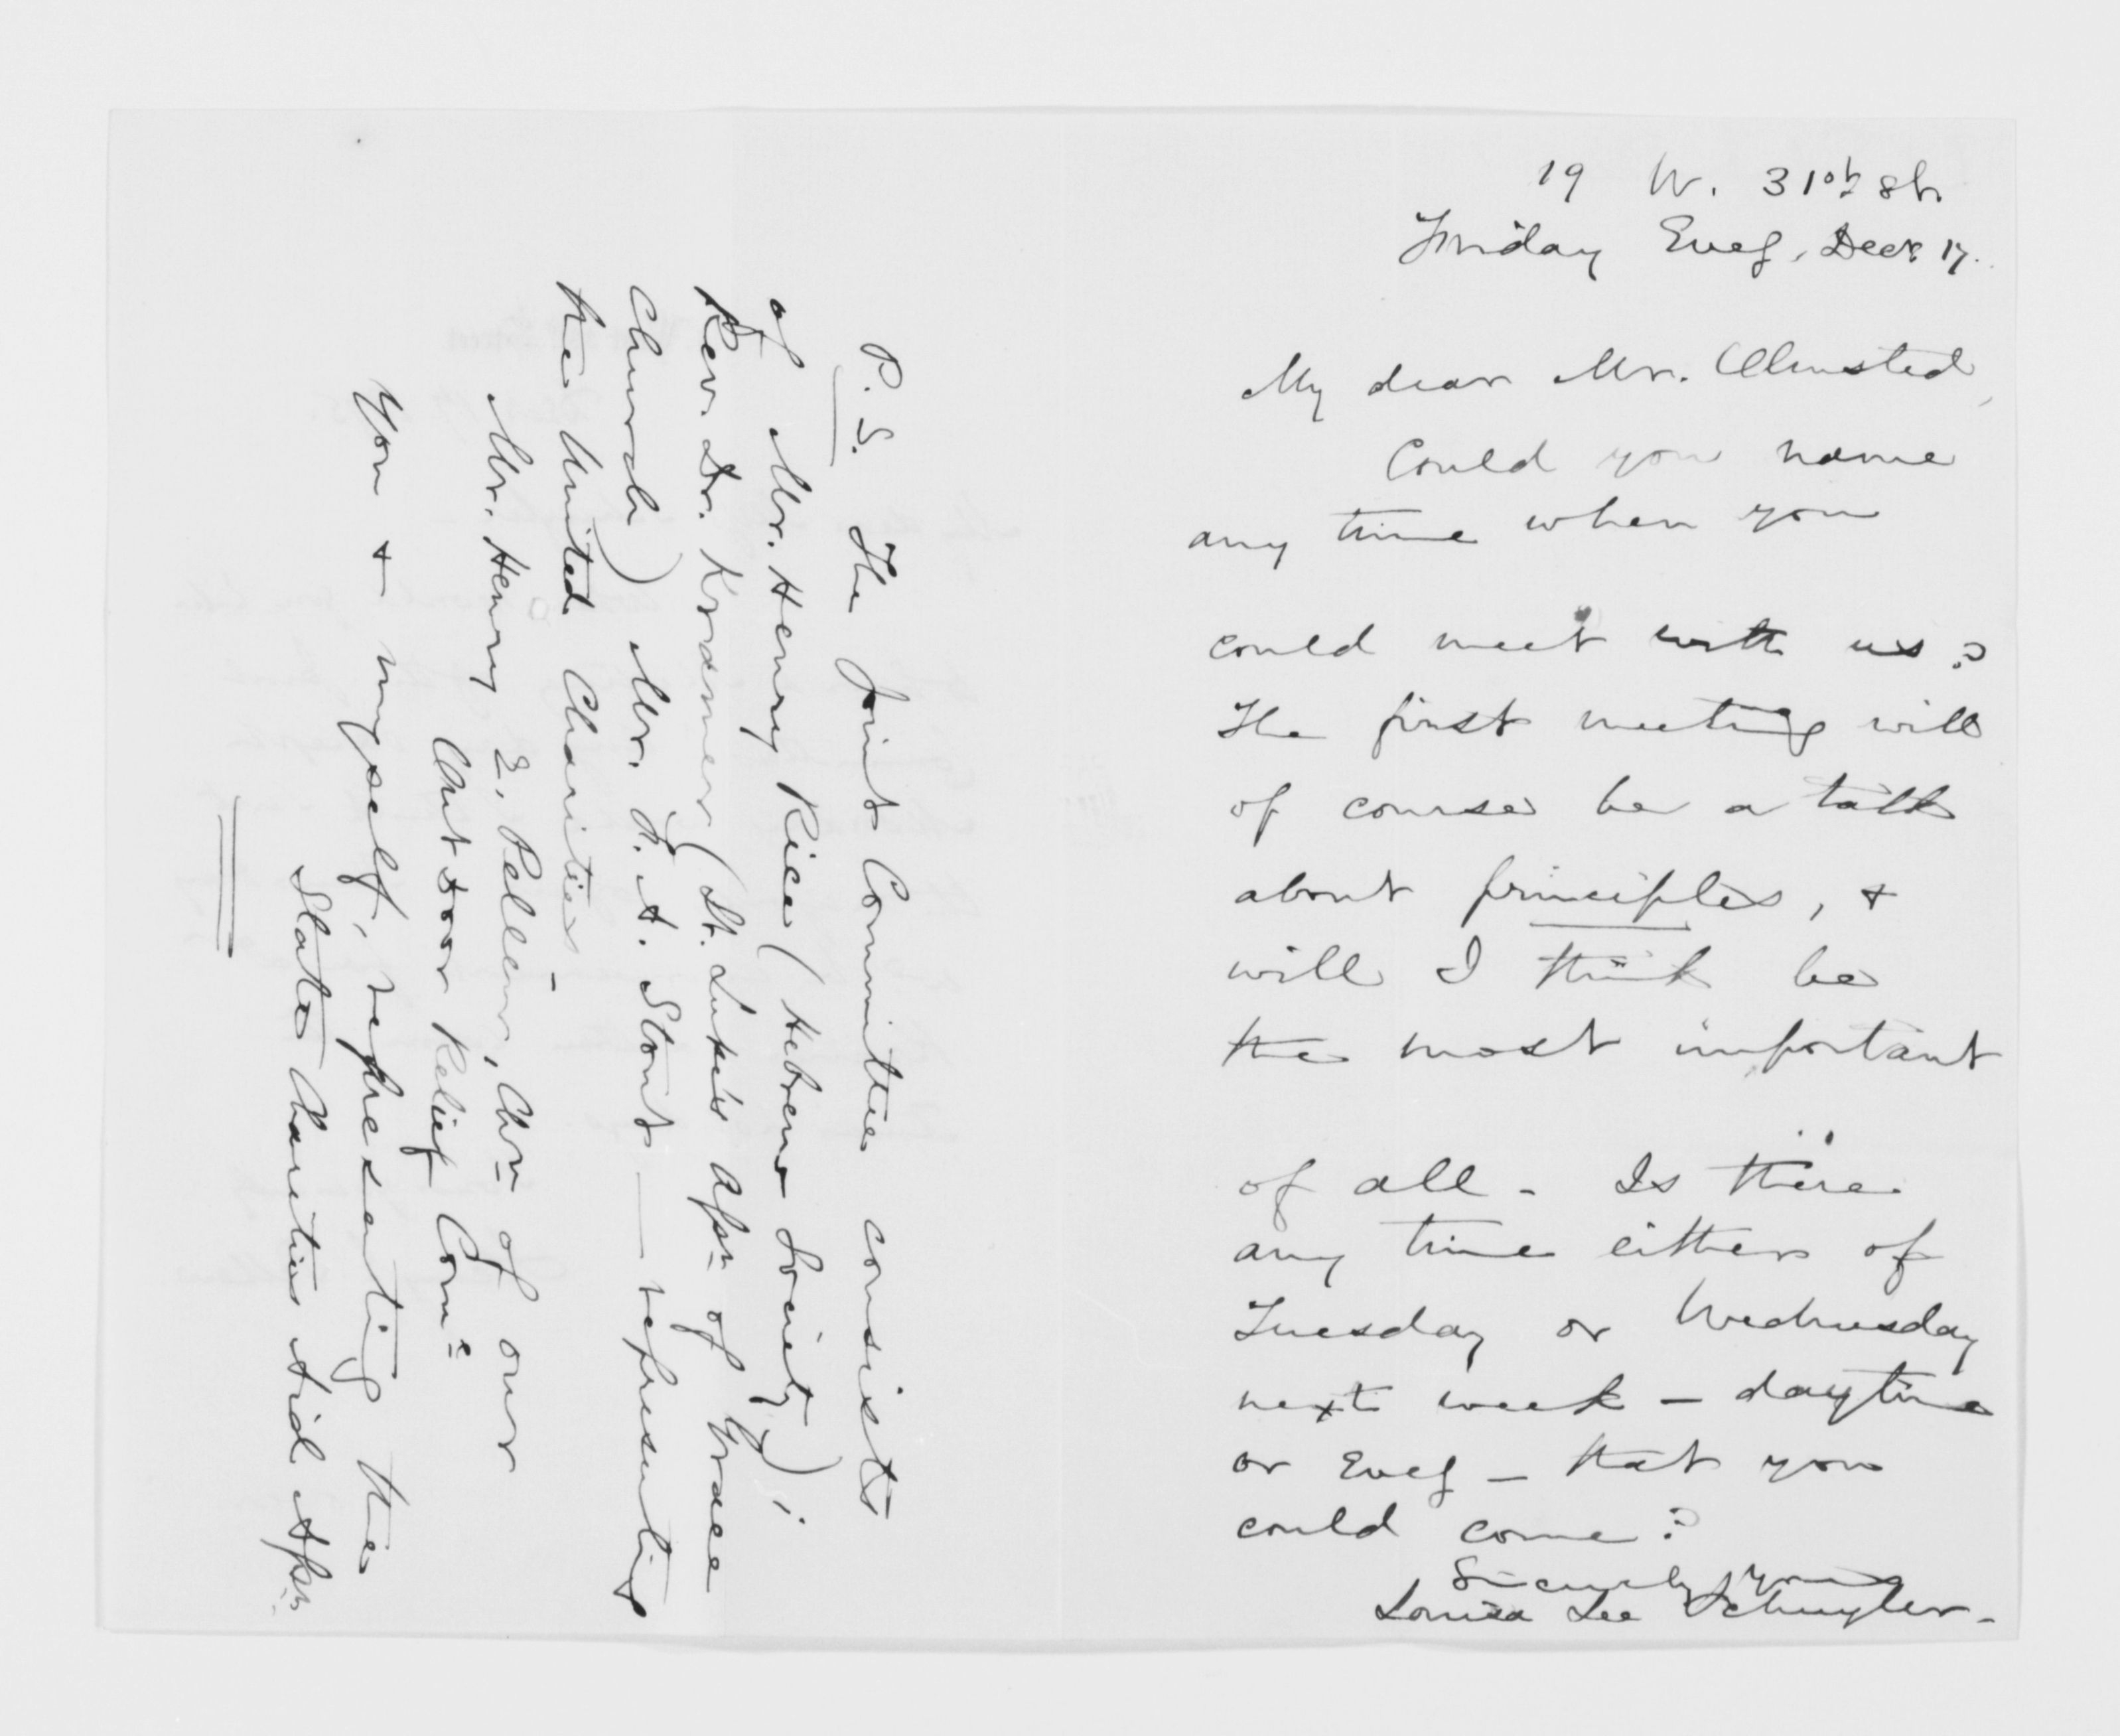 19 W. 31st St.
Friday Eveg, Decr. 17.
My dear Mr. Olmsted,
Could you name
any time when you
could meet with us?
The first meeting will
of course be a talk
about principles, &
will I think be
the most important
of all - Is there
any time either of
Tuesday or Wednesday
next week - daytime
or Eveg - that you
could come?
Sincerely yours
Louisa Lee Schuyler -
P.S. The Joint Committee consists
of Mr. Henry Rice (Hebrew Society);
Rev. Dr. Kramer (St. Luke's Assn of Grace
Church) Mr. F. A. Stout — representing
the United Charities
Mr. Henry E. Pellew, Chn of our
Out door Relief Come
You & myself, representing the
State Charities Aid Assn.